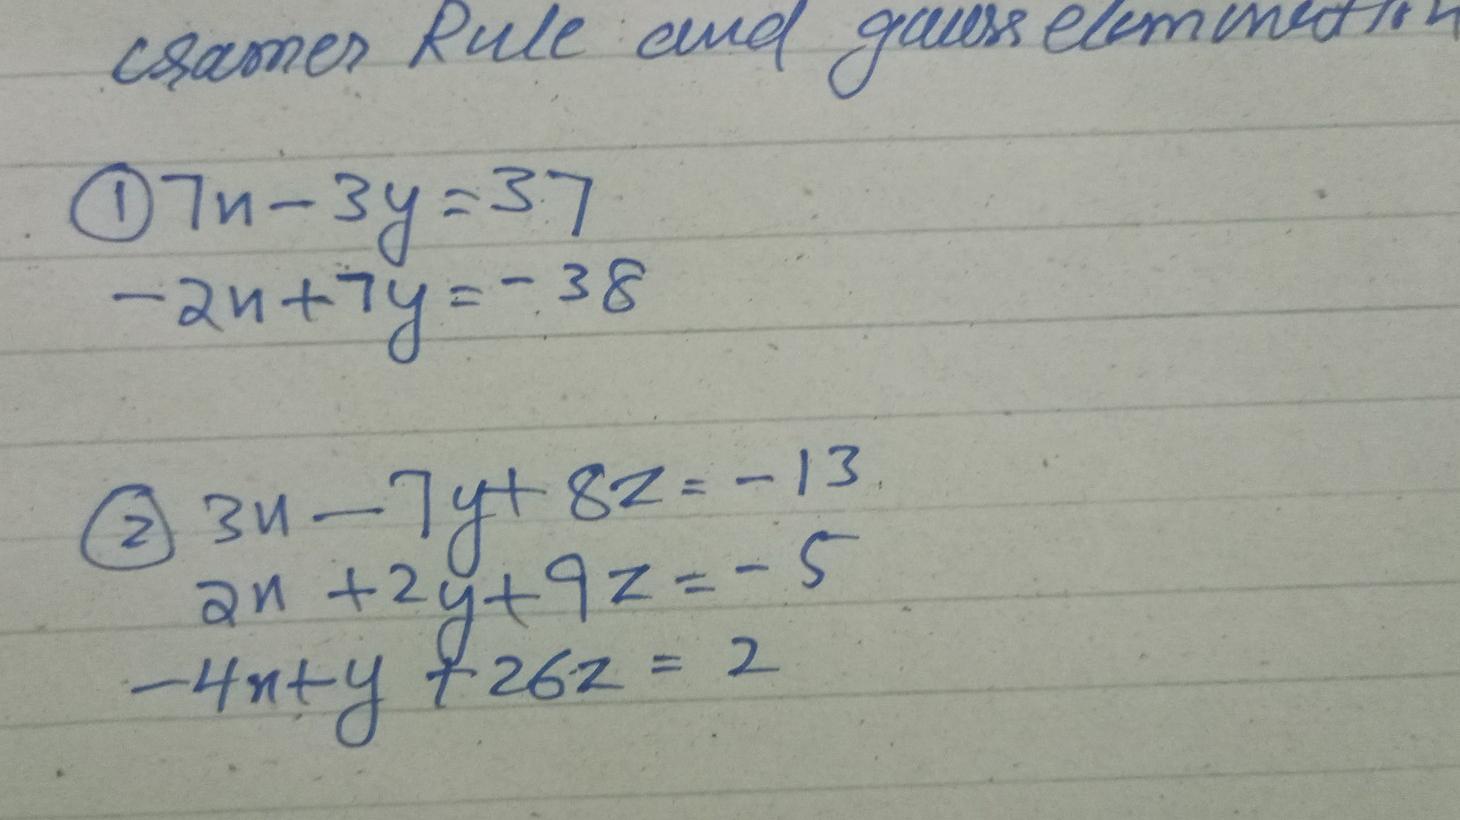 cramer Rule and gauss elemination
① 7x - 3y = 37
-2x + 7y = -38
② 3x - 7y + 8z = -13
2x + 2y + 9z = -5
-4x + y + 26z = 2